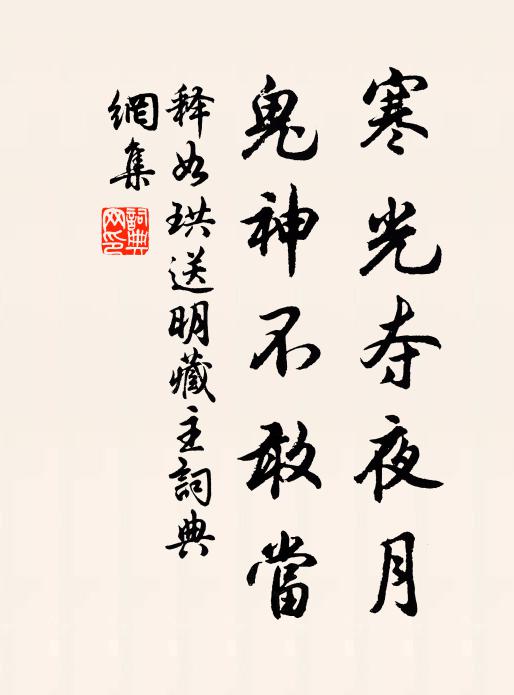 寒光夺夜月
鬼神不敢當
释如珙送明藏主詞典
網集
詞典
网印